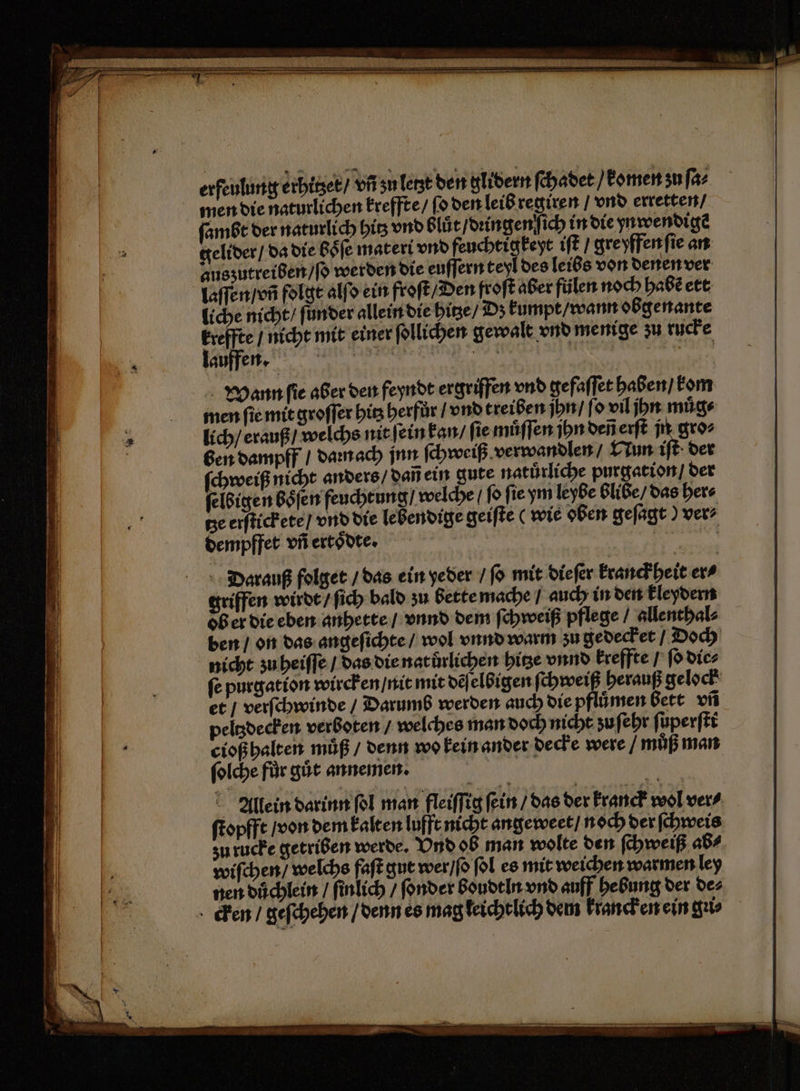 erfeulung erhitzet / vñ zu letzt den glidern ſchadet / komen zu ſa⸗
men die naturlichen kreffte / ſo den leib regiren / vnd erretten /
ſambt der naturlich hitz vnd blůt / dringen ſich in die ynwendigẽ
gelider / da die bôſe materi vnd feuchtigkeyt iſt / greyffen ſie an
auszutreiben / ſo werden die euſſern teyl des leibs von denen ver
laſſen / vñ folgt alſo ein froſt / Den froſt aber fülen noch habẽ ett
liche nicht / ſunder allein die hitze / Dz kumpt / wann obgenante
kreffte / nicht mit einer ſollichen gewalt vnd menige zu rucke
lauffen.
Wann ſie aber den feyndt ergriffen vnd gefaſſet haben / kom
men ſie mit groſſer hitz herfür / vnd treiben jhn / ſo vil jhn müg⸗
lich / erauß / welchs nit ſein kan / ſie müſſen jhn deñ erſt jn gro⸗
ben dampff / darnach jnn ſchweiß verwandlen / Nun iſt der
ſchweiß nicht anders / dañ ein gute natürliche purgation / der
ſelbigen bôſen feuchtung / welche / ſo ſie ym leybe blibe / das her⸗
tze erſtickete / vnd die lebendige geiſte ( wie oben geſagt ) ver⸗
dempffet vñ ertôdte.
Darauß folget / das ein yeder / ſo mit dieſer kranckheit er⸗
griffen wirdt / ſich bald zu bette mache / auch in den kleydern
ob er die eben anhette / vnnd dem ſchweiß pflege / allenthal⸗
ben / on das angeſichte / wol vnnd warm zu gedecket / Doch
nicht zu heiſſe / das die natürlichen hitze vnnd krefſte / ſo die⸗
ſe purgation wircken / nit mit dẽſelbigen ſchweiß herauß gelock
et / verſchwinde / Darumb werden auch die pflümen bett vñ
peltzdecken verboten / welches man doch nicht zu ſehr ſuperſti
cioß halten müß / denn wo kein ander decke were / müß man
ſolche für gůt annemen.
Allein darinn ſol man fleiſſig ſein / das der kranck wol ver⸗
ſtopfft / von dem kalten lufft nicht angeweet / noch der ſchweis
zu rucke getriben werde. Vnd ob man wolte den ſchweiß ab⸗
wiſchen / welchs faſt gut wer / ſo ſol es mit weichen warmen ley
nen důchlein / ſinlich / ſonder boudtln vnd auff hebung der de⸗
cken / geſchehen / denn es mag leichtlich dem krancken ein gri⸗